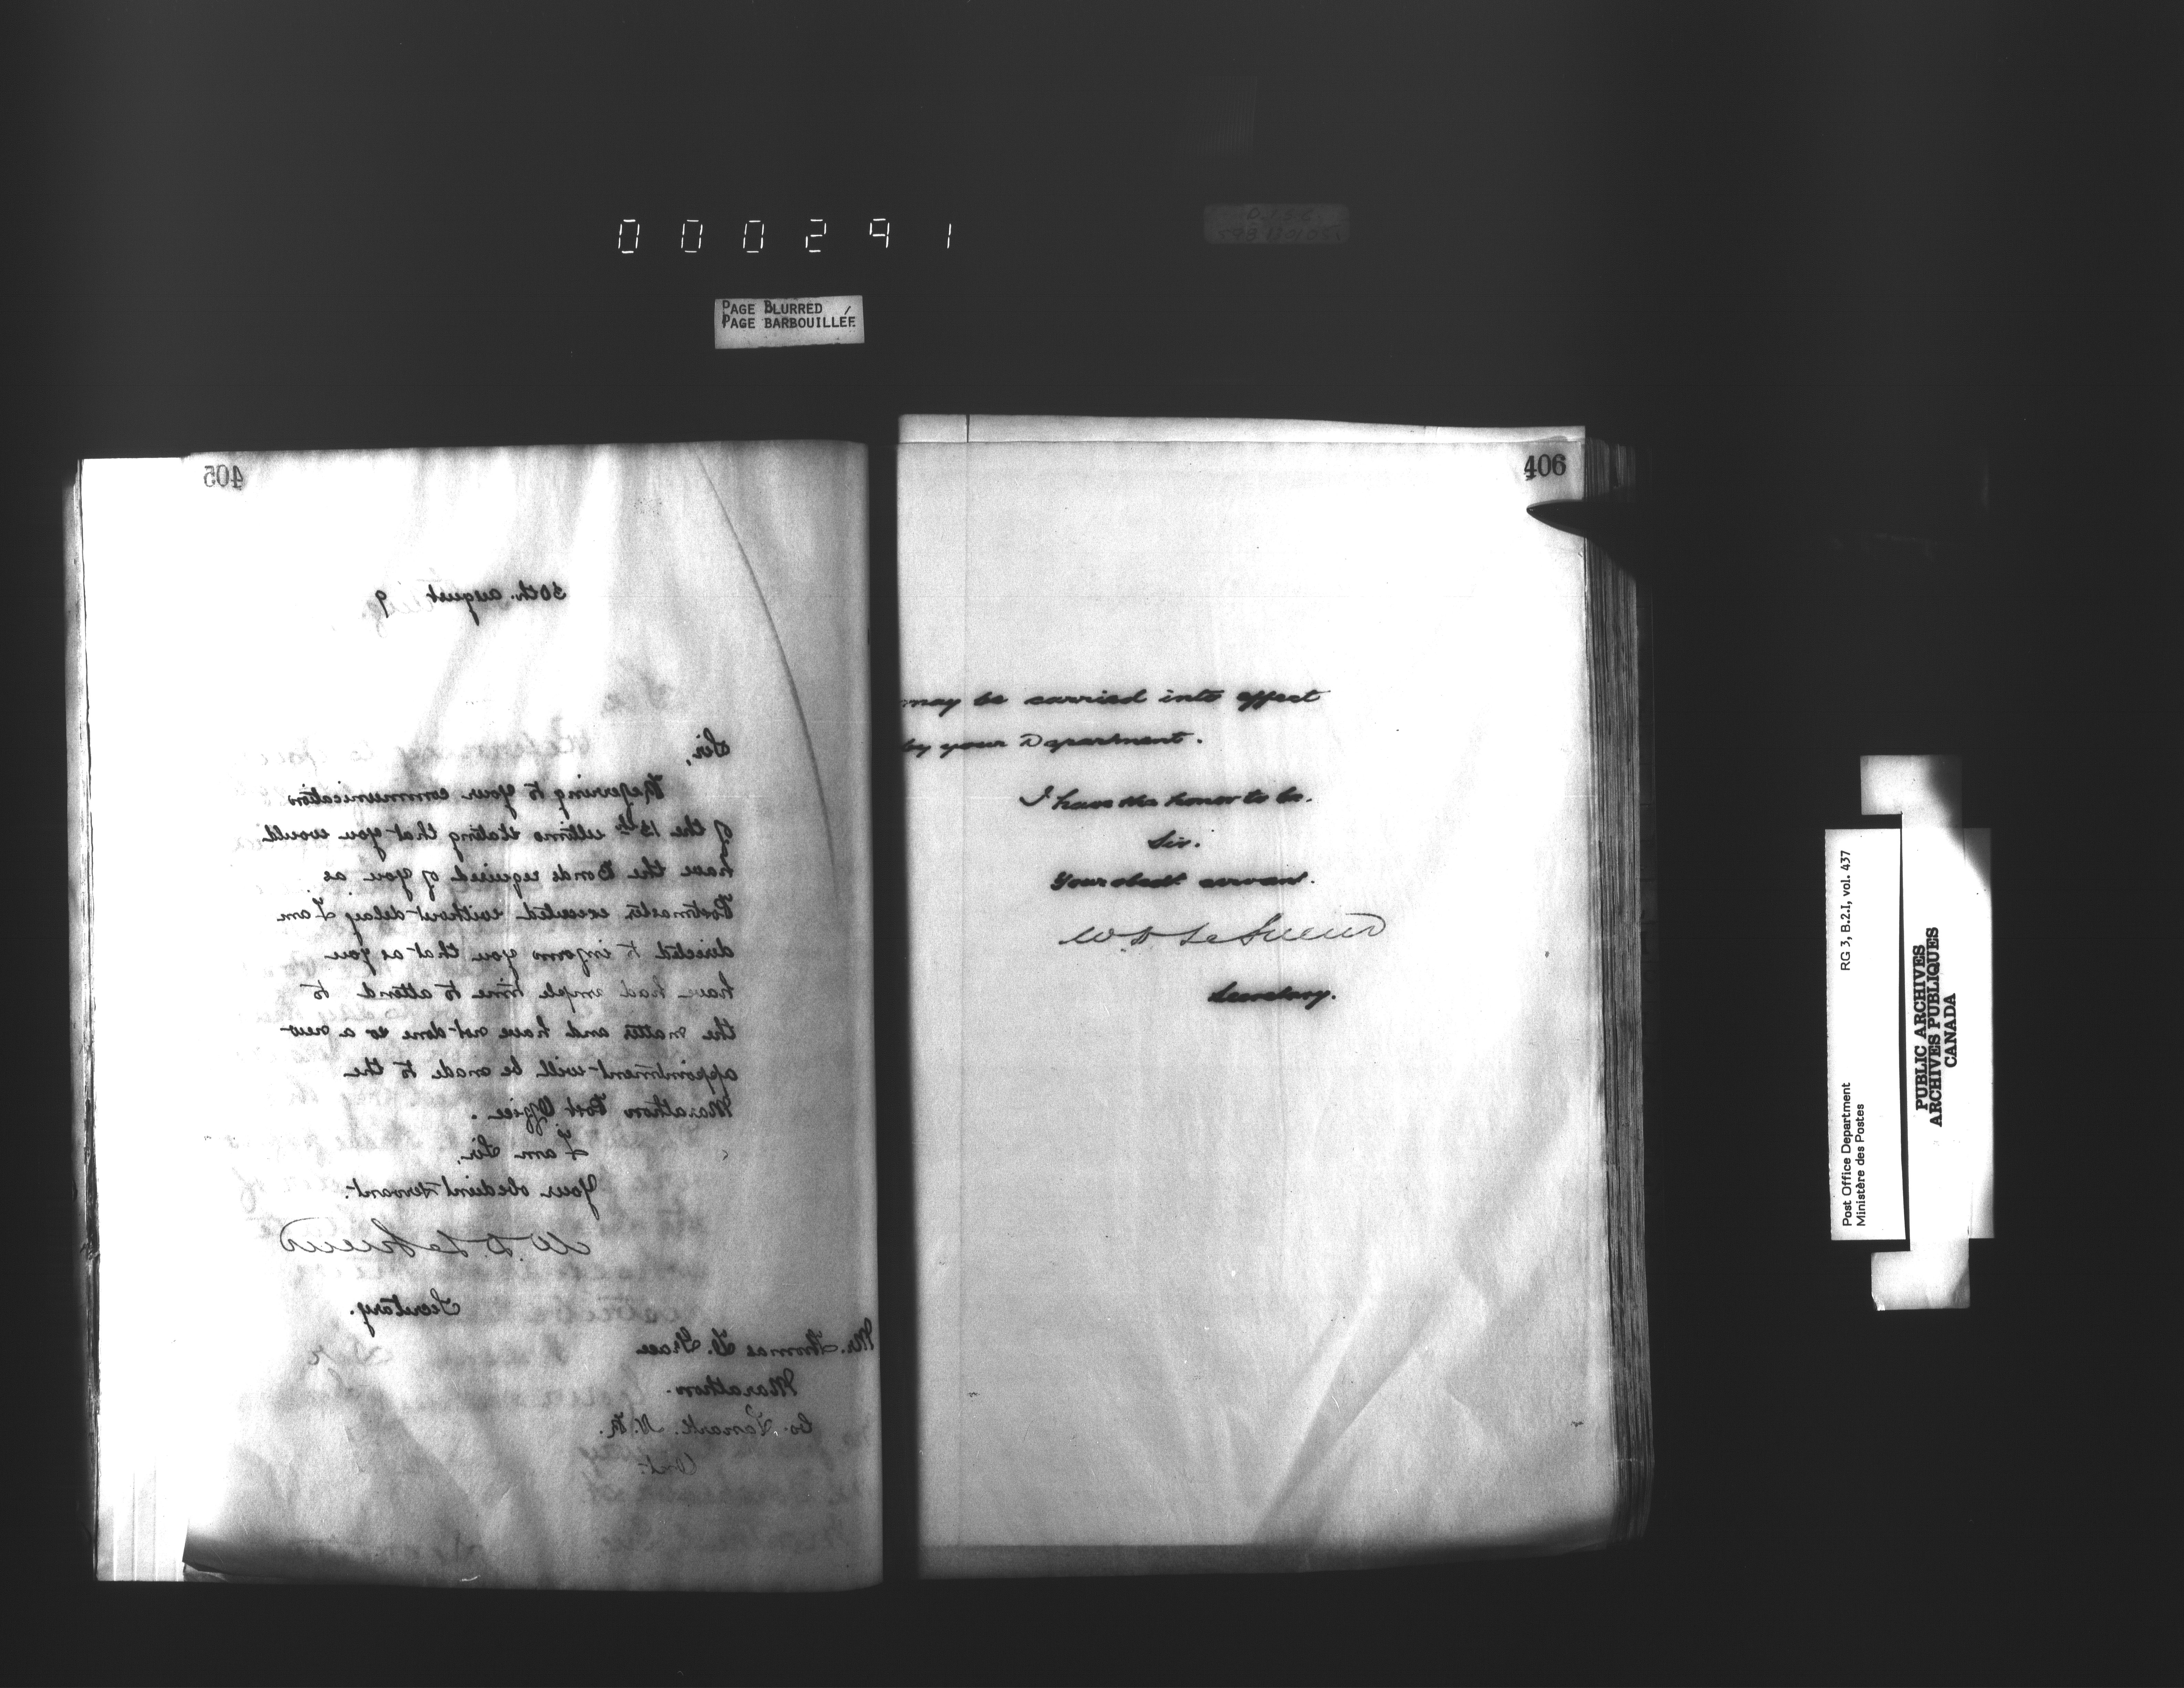 000291
PAGE BLURRED
PAGE BARBOUILLÉE
405
30th. August 9
Sir,
Referring to your communication
of the 13th ultimo stating that you would
have the Bonds required of you as
Postmaster executed without delay I am
directed to inform you that as you
have had ample time to attend to
the matter and have not done so a new
appointment will be made to the
Marathon Post Office.
I am Sir,
Your obedient servant.
W. D. LeSueur
Secretary.
Mr. Thomas B. Grace
Marathon.
Co. Lanark. N. R.
Ont.
406
may be carried into effect
by your Department.
I have the honor to be.
Sir.
Your obedt. servant.
W. D. LeSueur
Secretary.
Post Office Department RG 3, B.2.I, vol. 437
Ministère des Postes
PUBLIC ARCHIVES
ARCHIVES PUBLIQUES
CANADA